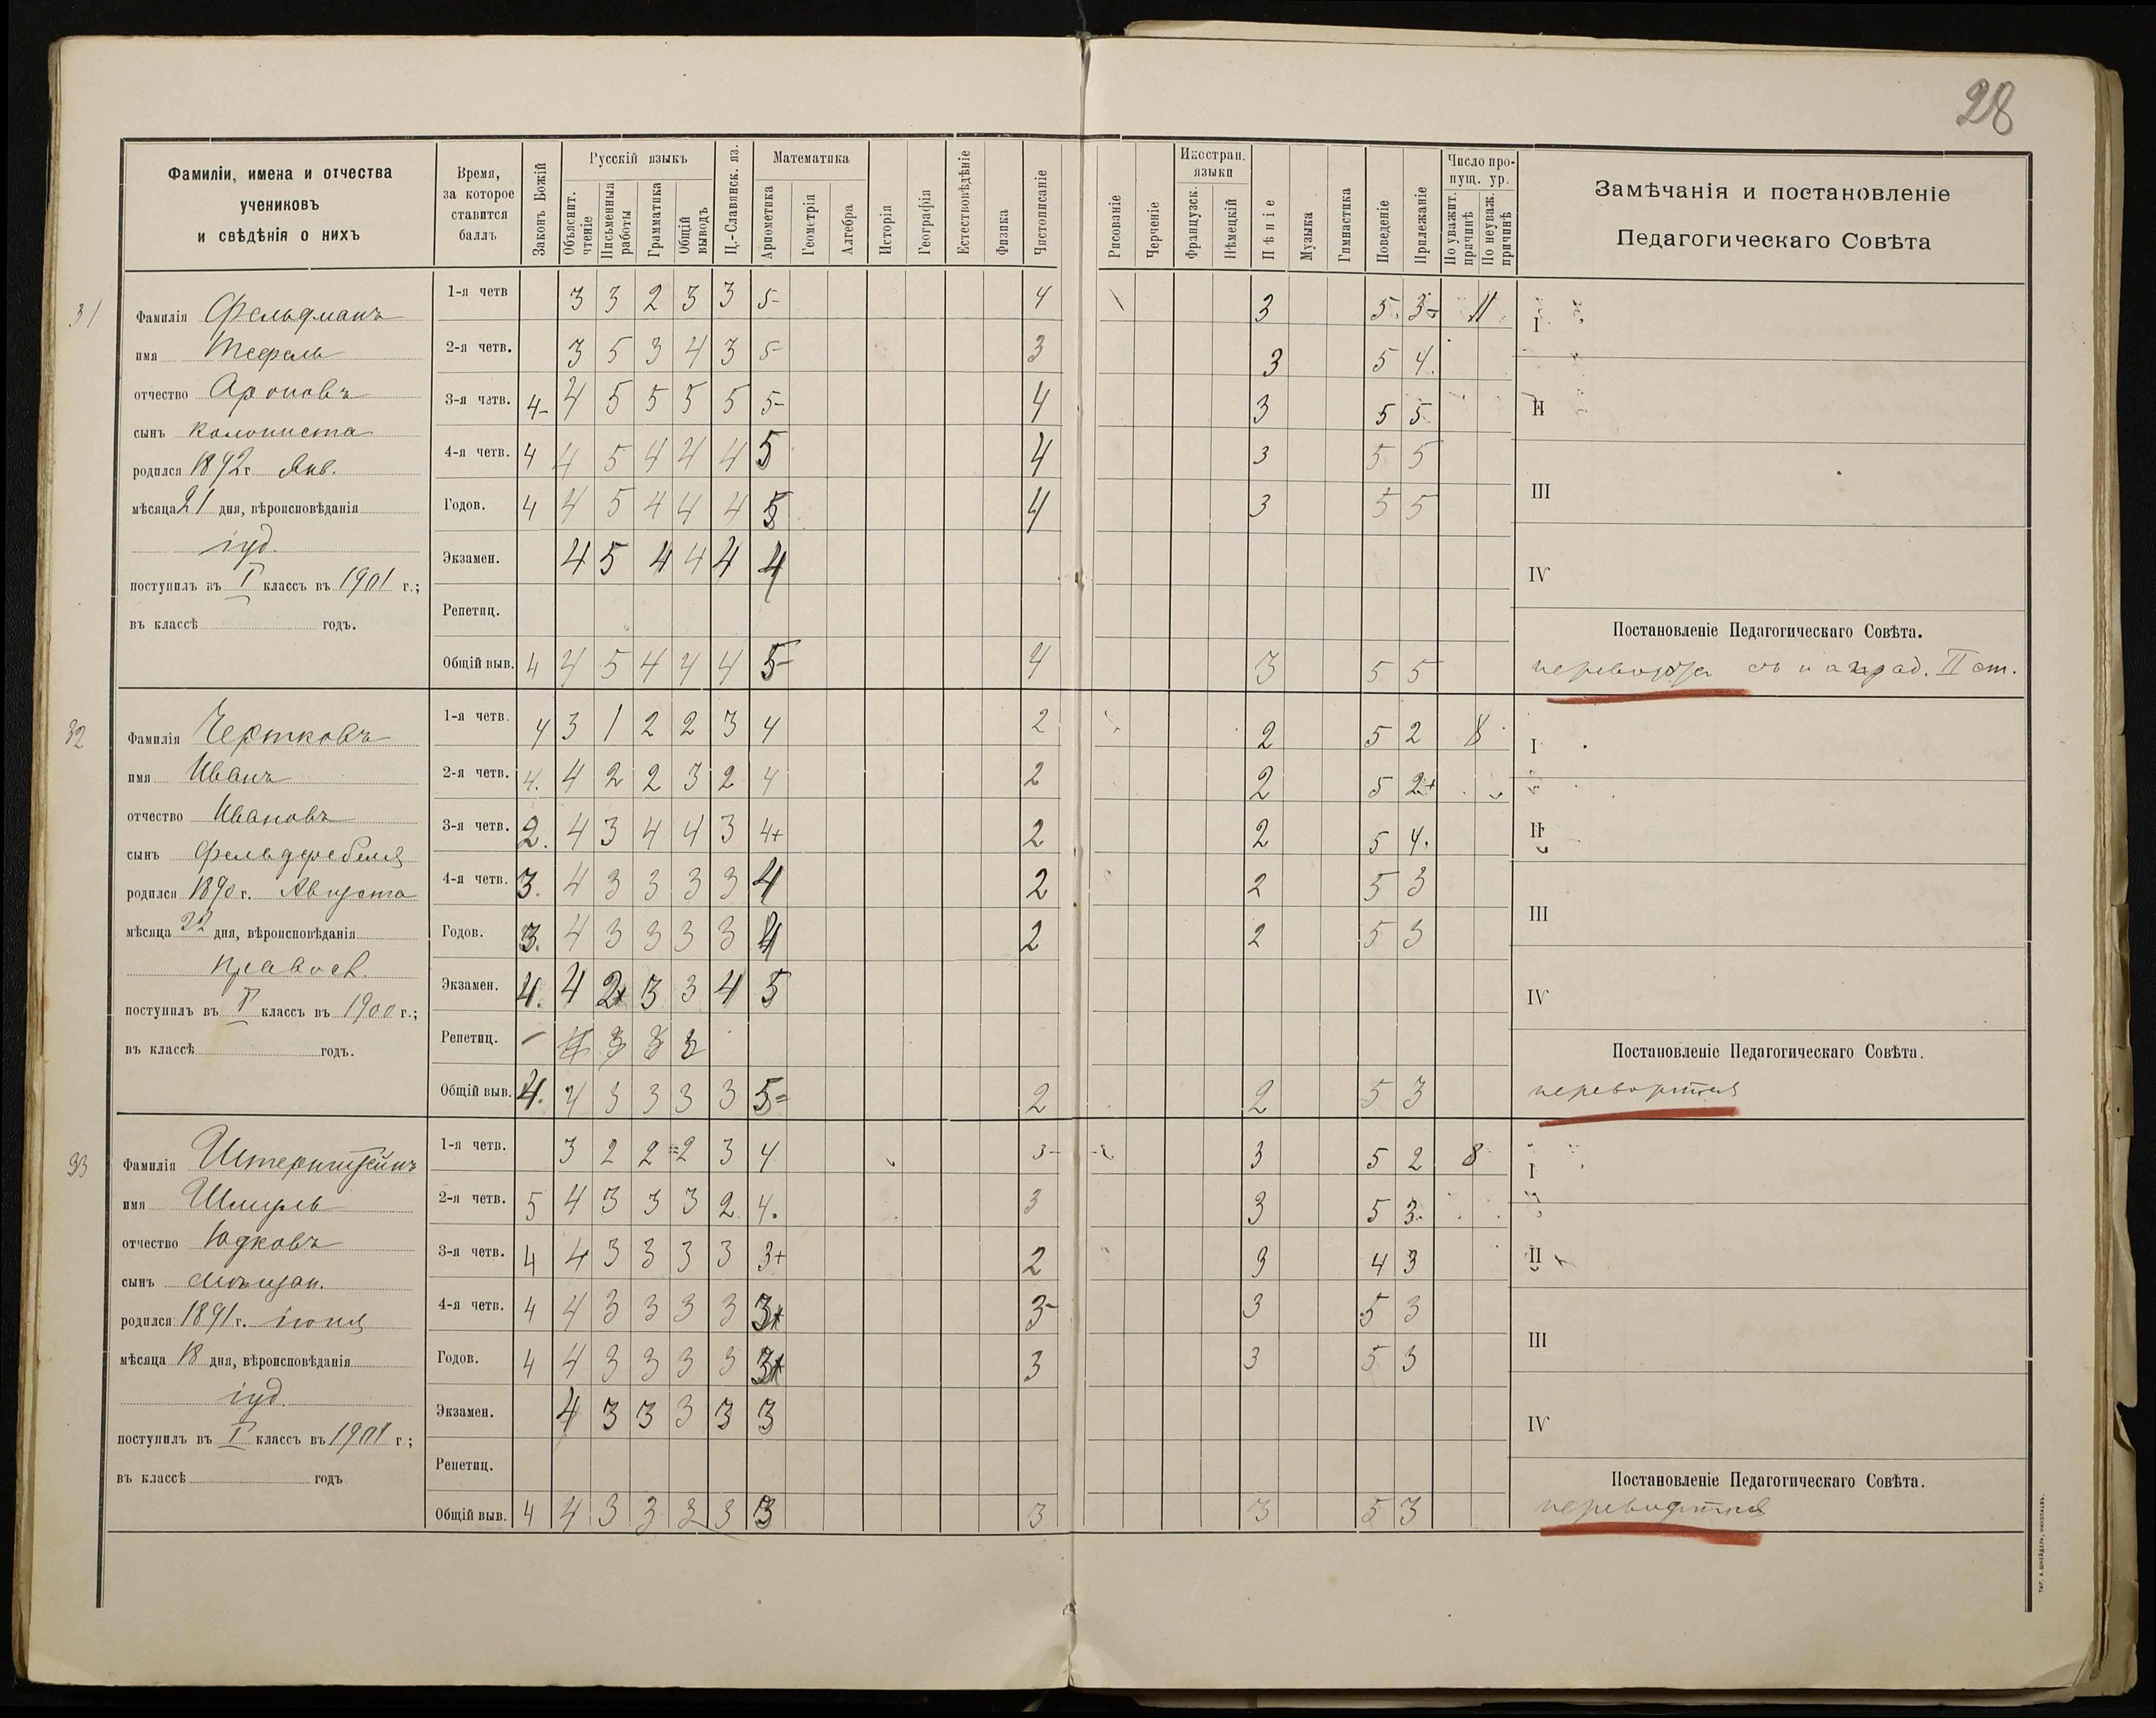 28
Фамиліи, имена и отчества
учениковъ
и свѣдѣнія о нихъ
Время,
за которое
ставится
баллъ
Законъ Божій
Русскій языкъ
Объяснит. чтеніе
Письменныя работы
Грамматика
Общій выводъ
Ц.-Славянск. яз.
Математика
Ариѳметика
Геометрія
Алгебра
Исторія
Географія
Естествовѣдѣніе
Физика
Чистописаніе
Рисованіе
Черченіе
Иностран. языки
Французск.
Нѣмецкій
Пѣніе
Музыка
Гимнастика
Поведеніе
Прилежаніе
Число пропущ. ур.
По уважит. причинѣ
По неуваж. причинѣ
Замѣчанія и постановленіе
Педагогическаго Совѣта
31
Фамилія Фельдманъ
имя
отчество Ароновъ
сынъ колониста
родился 1892 г. Янв.
мѣсяца 21 дня, вѣроисповѣданія
іуд.
поступилъ въ I классъ въ 1901 г.;
въ классѣ годъ.
1-я четв 3 3 2 3 3 5- 4 3 5 3- 11
2-я четв. 3 5 3 4 3 5- 3 3 5 4.
3-я четв. 4- 4 5 5 5 5 5- 4 3 5 5
4-я четв. 4 4 5 4 4 4 5 4 3 5 5
Годов. 4 4 5 4 4 4 5 4 3 5 5
Экзамен. 4 5 4 4 4 4
Репетиц.
Общій выв. 4 4 5 4 4 4 5- 4 3 5 5
I
II
III
IV
Постановленіе Педагогическаго Совѣта.
съ наград. II ст.
32
Фамилія Чертковъ
имя Иванъ
отчество Ивановъ
сынъ фельдфебеля
родился 1890 г. Августа
мѣсяца 22 дня, вѣроисповѣданія
правосл.
поступилъ въ I классъ въ 1900 г.;
въ классѣ годъ.
1-я четв. 4 3 1 2 2 3 4 2 2 5 2 8
2-я четв. 4. 4 2 2 3 2 4 2 2 5 2+
3-я четв. 2. 4 3 4 4 3 4+ 2 2 5 4.
4-я четв. 3. 4 3 3 3 3 4 2 2 5 3
Годов. 3. 4 3 3 3 3 4 2 2 5 3
Экзамен. 4. 4 2+ 3 3 4 5
Репетиц. – 4 3 3 3
Общій выв. 4. 4 3 3 3 3 5= 2 2 5 3
I
II
III
IV
Постановленіе Педагогическаго Совѣта.
переводится
33
Фамилія Штернштейнъ
имя Шмуль
отчество Юдковъ
сынъ мѣщан.
родился 1891 г. іюня
мѣсяца 18 дня, вѣроисповѣданія
іуд.
поступилъ въ I классъ въ 1901 г.;
въ классѣ годъ
1-я четв. 3 2 2= 2 3 4 3- 3 5 2 8
2-я четв. 5 4 3 3 3 2 4. 3 3 5 3.
3-я четв. 4 4 3 3 3 3 3+ 2 3 4 3
4-я четв. 4 4 3 3 3 3 3+ 3- 3 5 3
Годов. 4 4 3 3 3 3 3+ 3 3 5 3
Экзамен. 4 3 3 3 3 3
Репетиц.
Общій выв. 4 4 3 3 3 3 3 3 3 5 3
I
II
III
IV
Постановленіе Педагогическаго Совѣта.
переводится
ТИП. А. ШНЕЙДЕРА, НИКОЛАЕВЪ.